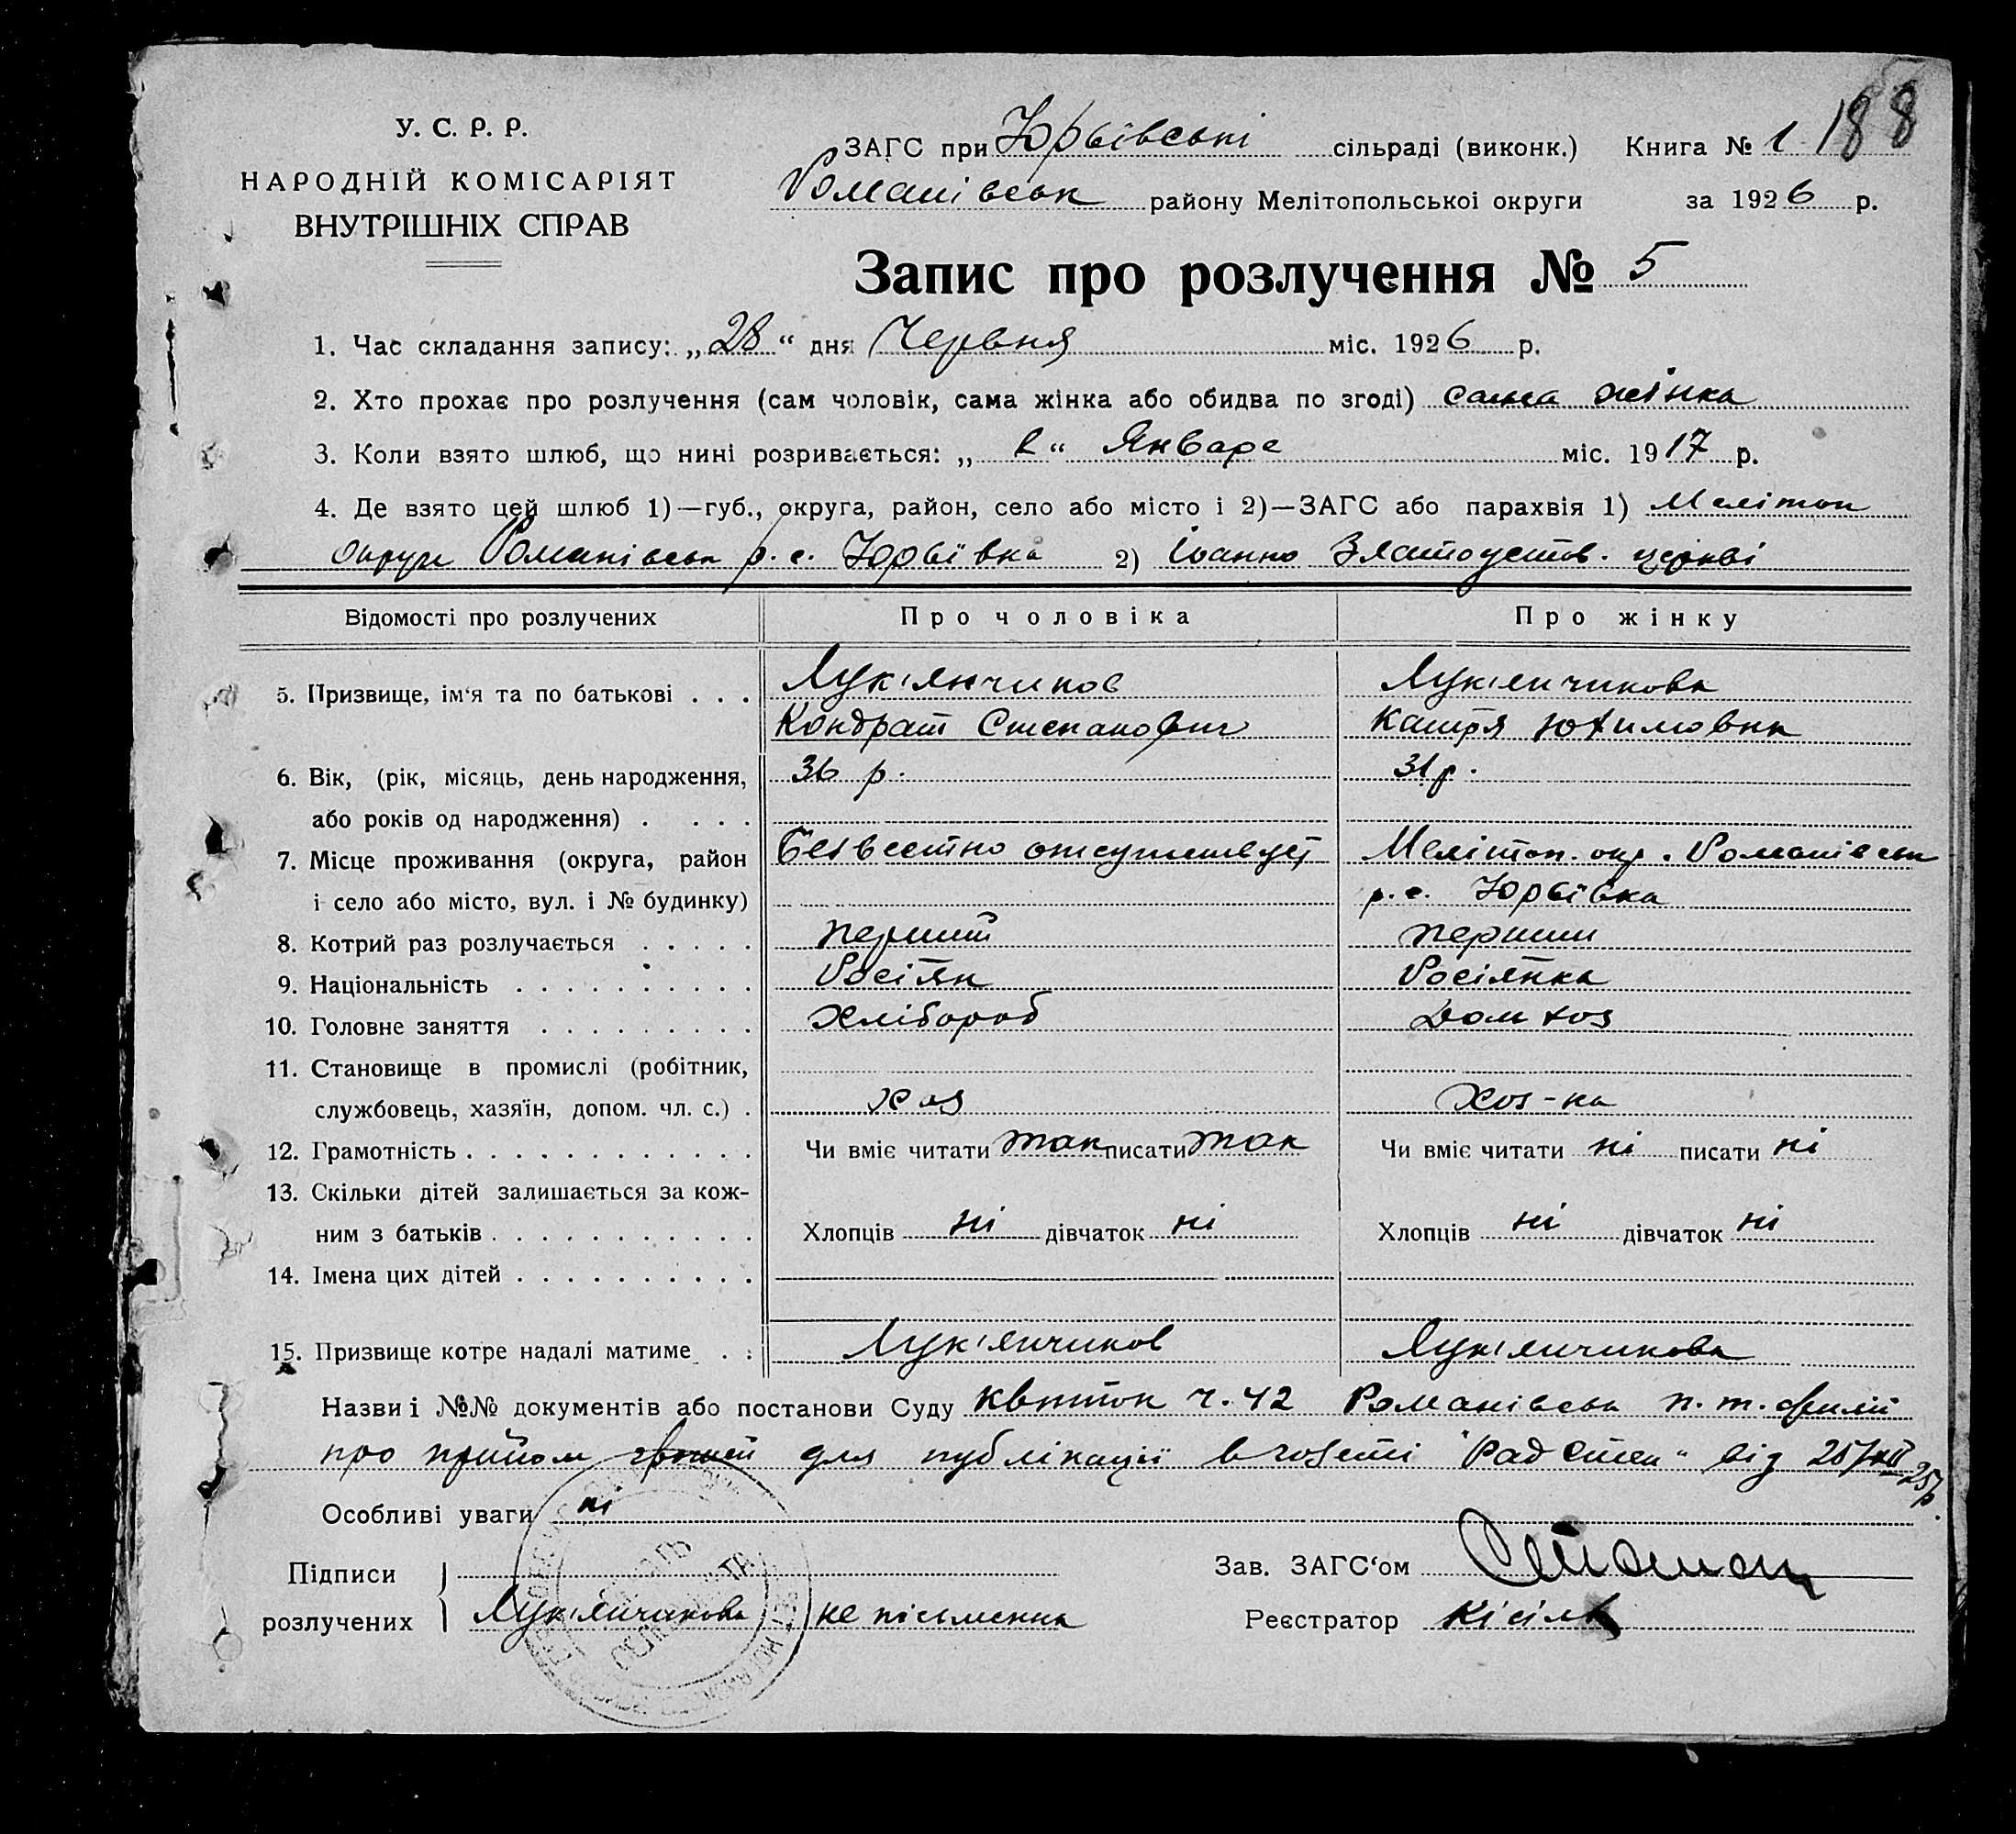 188
У. С. Р. Р.
НАРОДНІЙ КОМІСАРІЯТ
ВНУТРІШНІХ СПРАВ
ЗАГС при Юрʼївські сільраді (виконк.) Книга № 1
Романівськ району Мелітопольської округи за 1926 р.
Запис про розлучення № 5
1. Час складання запису: „28“ дня Червня міс. 1926 р.
2. Хто прохає про розлучення (сам чоловік, сама жінка або обидва по згоді) сама жінка
3. Коли взято шлюб, що нині розривається: „ “ Январе міс. 1917 р.
4. Де взято цей шлюб 1)—губ., округа, район, село або місто і 2)—ЗАГС або парахвія 1) Мелітоп
округи Романівськ р. с. Юрʼївка 2) Іоанно Златоустів. церкві
Відомості про розлучених Про чоловіка Про жінку
5. Призвище, ім'я та по батькові . . . Лук'янчиков Лук'янчикова
Кондрат Степанович Катря Юхимовна
6. Вік, (рік, місяць, день народження, 36 р. 31 р.
або років од народження) . . . .
7. Місце проживання (округа, район Безвестно отсутствует Мелітоп. окр. Романівськ
і село або місто, вул. і № будинку) р. с. Юрʼївка
8. Котрий раз розлучається . . . . . перший перший
9. Національність . . . . . . . . . . Росіян Росіянка
10. Головне заняття . . . . . . . . . Хлібороб Дом хоз
11. Становище в промислі (робітник,
службовець, хазяїн, допом. чл. с.) . хоз Хоз-ка
12. Грамотність . . . . . . . . . . . . . Чи вміє читати так писати так Чи вміє читати ні писати ні
13. Скільки дітей залишається за кож-
ним з батьків . . . . . . . . . . . Хлопців ні дівчаток ні Хлопців ні дівчаток ні
14. Імена цих дітей . . . . . . . . . .
15. Призвище котре надалі матиме . . Лук'янчиков Лук'янчикова
Назви і №№ документів або постанови Суду квиток ч. 42 Романівськ п. т. філії
про прийом грошей для публікації в газеті "Рад Степ" від 25/XII 25 р.
Особливі уваги ні
Підписи Зав. ЗАГС'ом
розлучених Лук'янчикова не пісьменна Реєстратор Кісіль